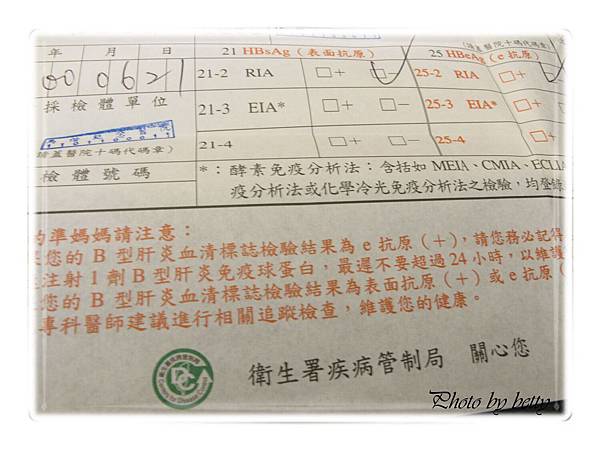 年 月 日
00 06 21
採檢體單位
請蓋醫院十碼代碼章)
檢體號碼
21 HBsAg (表面抗原)
21-2 RIA □+ □-
21-3 EIA* □+ □-
21-4 □+ □-
(請蓋醫院十碼代碼章)
25 HBeAg (e抗原)
25-2 RIA □+
25-3 EIA* □+
25-4 □+
*:酵素免疫分析法:含括如 MEIA、CMIA、ECLIA
疫分析法或化學冷光免疫分析法之檢驗,均登錄
的準媽媽請注意:
您的 B 型肝炎血清標誌檢驗結果為 e 抗原(+),請您務必記得
注射1劑B型肝炎免疫球蛋白,最遲不要超過24小時,以維護
您的 B 型肝炎血清標誌檢驗結果為表面抗原(+)或 e 抗原(
專科醫師建議進行相關追蹤檢查,維護您的健康。
衛生署疾病管制局 關心您
CDC
Centers for Disease Control
Photo by betty